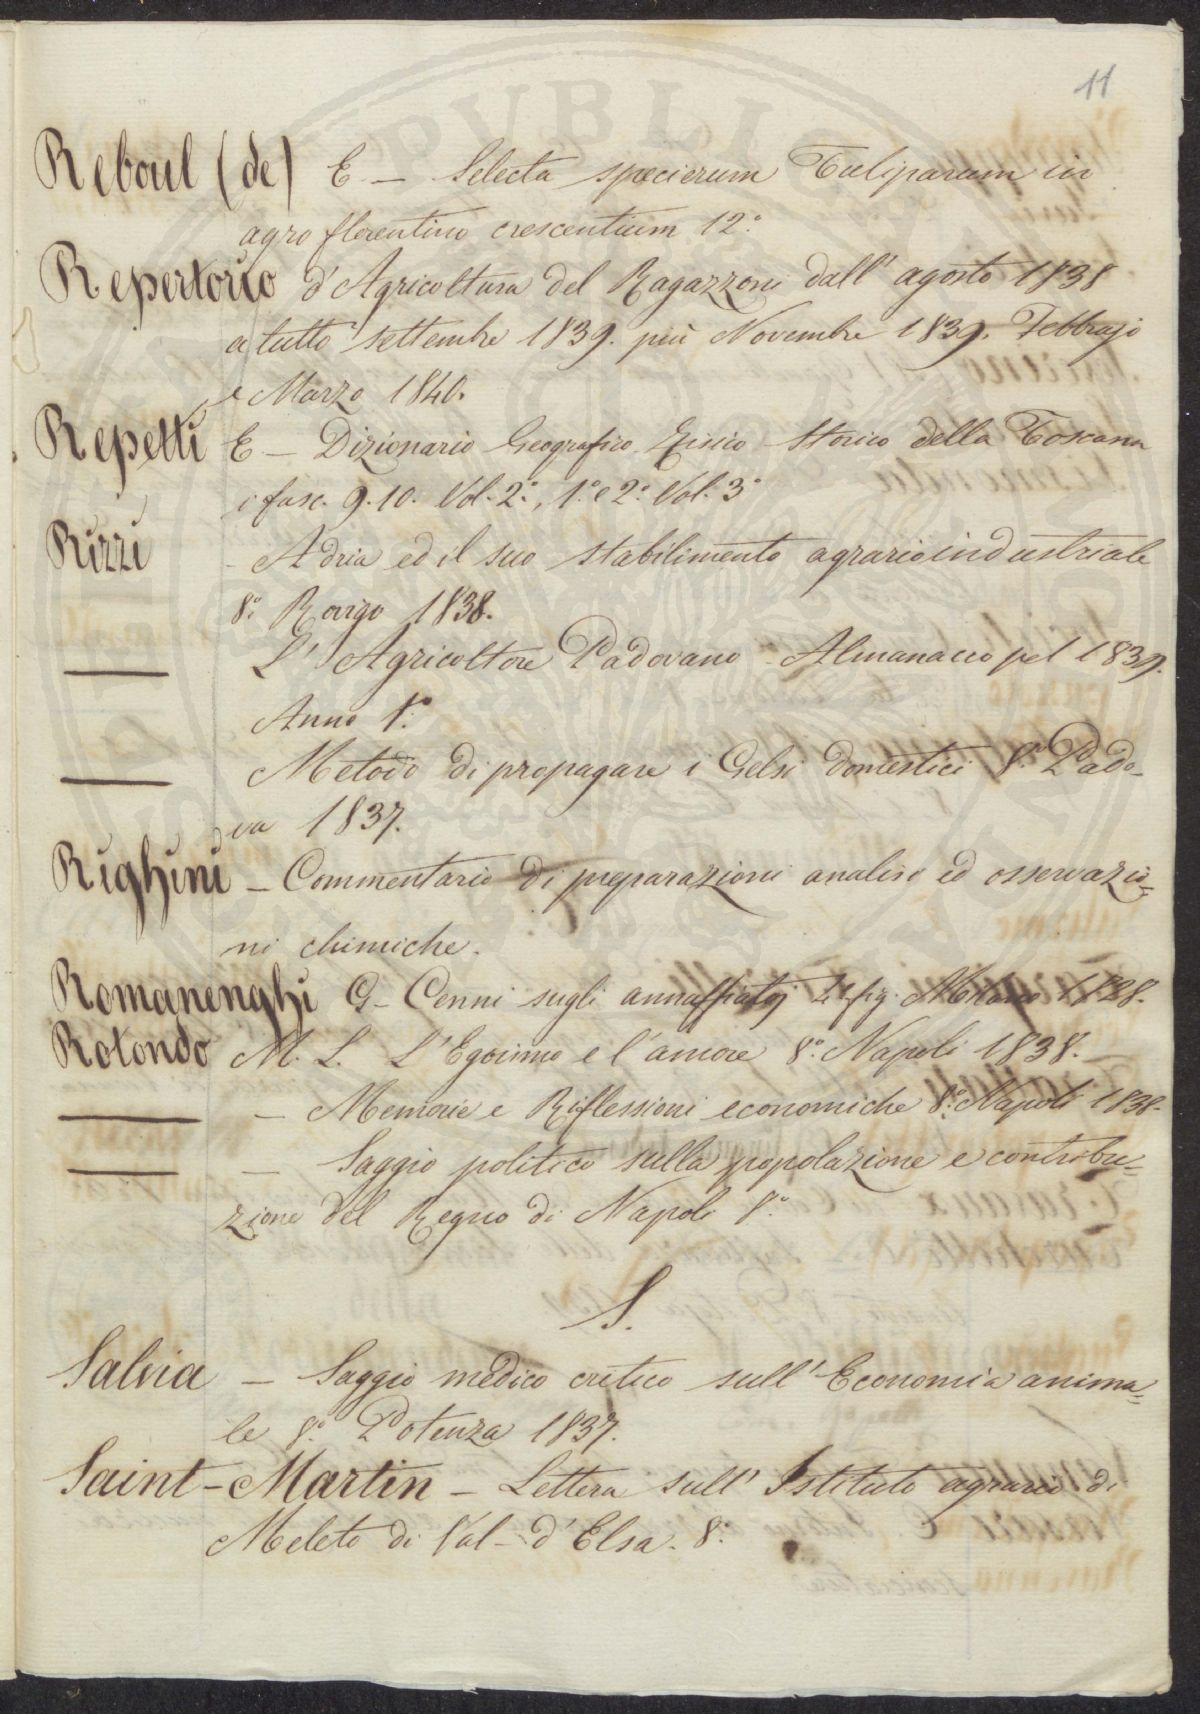 11
Reboul (de) E - Selecta specierum Tuliparum in
agro florentino crescentium 12.°
Repertorio d'Agricoltura del Ragazzoni dall'agosto 1838
a tutto settembre 1839. più Novembre 1839. Febbrajo
e Marzo 1840.
Repetti E - Dizionario Geografico Fisico Storico della Toscana
i fasc. 9. 10. Vol. 2.°, 1.° e 2.° Vol. 3.°
Rizzi - Adria ed il suo stabilimento agrario industriale
8.° Rovigo 1838.
— L'Agricoltore Padovano - Almanacco pel 1839.
Anno 1.°
— Metodo di propagare i Gelsi domestici 8.° Pado-
va 1837.
Righini - Commentario di preparazioni analisi ed osservazio=
ni chimiche.
Romanenghi G - Cenni sugli annaffiatoj fig. Milano 1828.
Rotondo M. L. L'Egoismo e l'amore 8.° Napoli 1838.
— - Memorie e Riflessioni economiche 8.° Napoli 1838.
— - Saggio politico sulla popolazione e contribu=
zione del Regno di Napoli 8.°
S.
Salvia - Saggio medico critico sull'Economia anima=
le 8.° Potenza 1837.
Saint-Martin - Lettera sull'Istituto agrario di
Meleto di Val-d'Elsa. 8.°